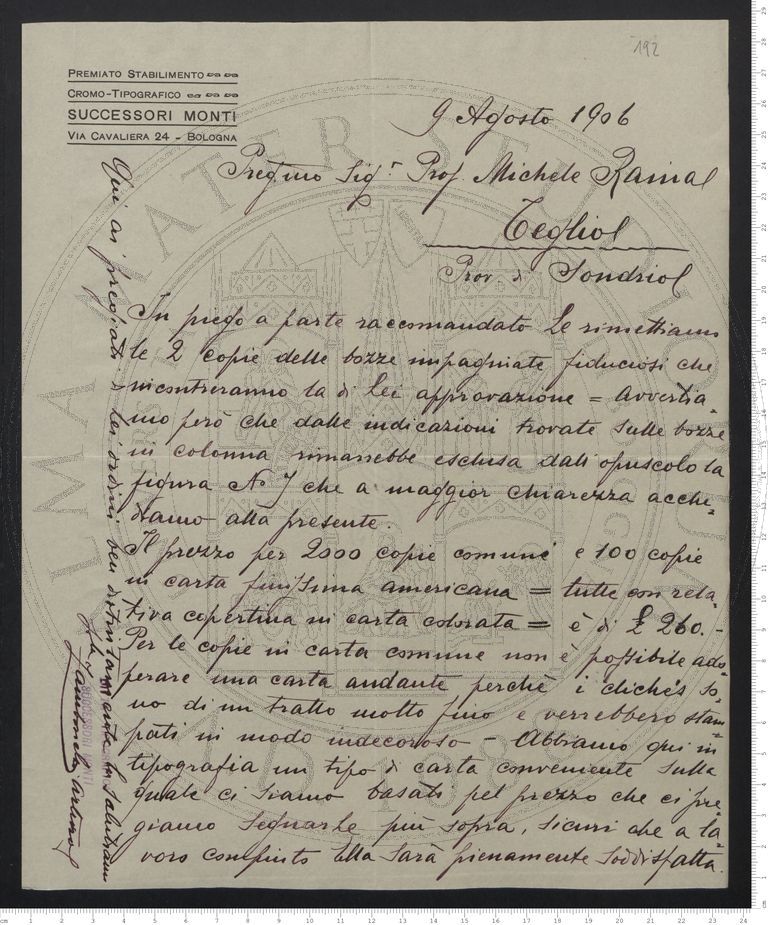 192
PREMIATO STABILIMENTO
CROMO-TIPOGRAFICO
SUCCESSORI MONTI
VIA CAVALIERA 24 - BOLOGNA
9 Agosto 1906
Pregmo Sigr. Prof. Michele Rajna
Teglio
Prov. di Sondrio
In piego a parte raccomandato Le rimettiamo
le 2 copie delle bozze impaginate fiduciosi che
incontreranno la di Lei approvazione = Avvertia=
mo però che dalle indicazioni trovate sulle bozze
in colonna rimarrebbe esclusa dall'opuscolo la
figura N. 7 che a maggior chiarezza acchi=
diamo alla presente.
Il prezzo per 2000 copie comuni e 100 copie
in carta finissima americana = tutte con rela=
tiva copertina in carta colorata = è di £ 260.-
Per le copie in carta comune non è possibile ado=
perare una carta andante perchè i clichés so=
no di un tratto molto fino e verrebbero stam=
pati in modo indecoroso - Abbiamo qui in
tipografia un tipo di carta conveniente sulla
quale ci siamo basati pel prezzo che ci pre=
giamo segnarLe più sopra, sicuri che a la=
voro compiuto Ella sarà pienamente soddisfatta.
Qui ai pregiati di Lei ordini ben distintamente La salutiamo
SUCCESSORI MONTI
ALMA MATER STUDIORUM
A.D. 1088